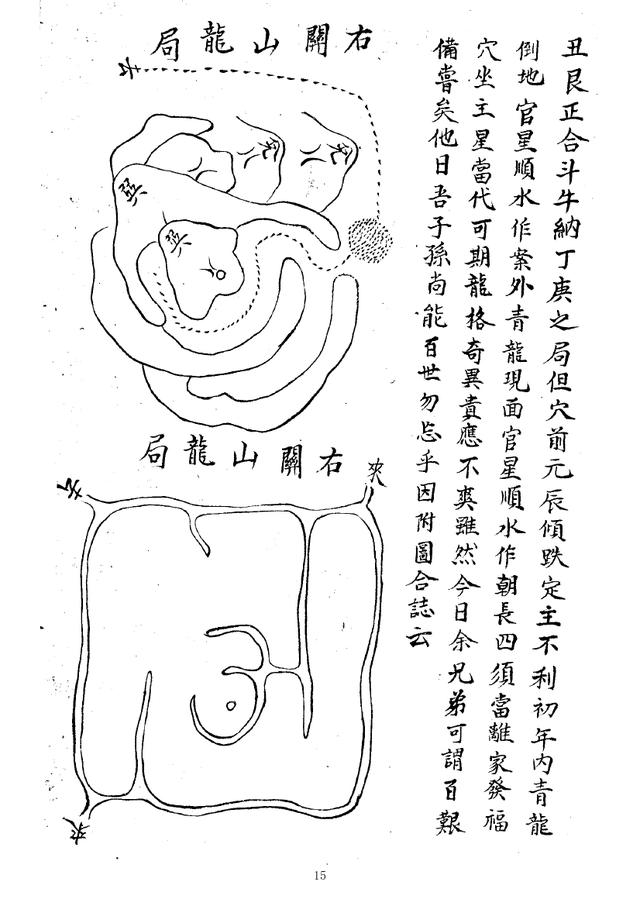 丑艮正合斗牛納丁庚之局但穴前元辰傾跌定主不利初年內青龍
倒地官星順水作案外青龍現面官星順水作朝長四須當離家發福
穴坐主星當代可期龍格奇異貴應不爽雖然今日余兄弟可謂百艱
備嘗矣他日吾子孫尚能百世勿忘乎因附圖合誌云
右關山龍局
去
巽
巽
右關山龍局
去
來
來
15